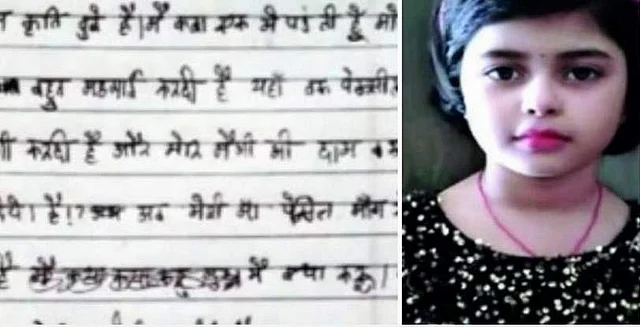 कृति दुबे है। मै कक्षा एक मे पड़ ती हूँ मो
बहुत महगाई करदी है यहाँ तक पेन्सील
गी करदी है और मेर मैगी की दाम ब
अब मेरी मा पेंसिल माँग
है मै क्या करू।